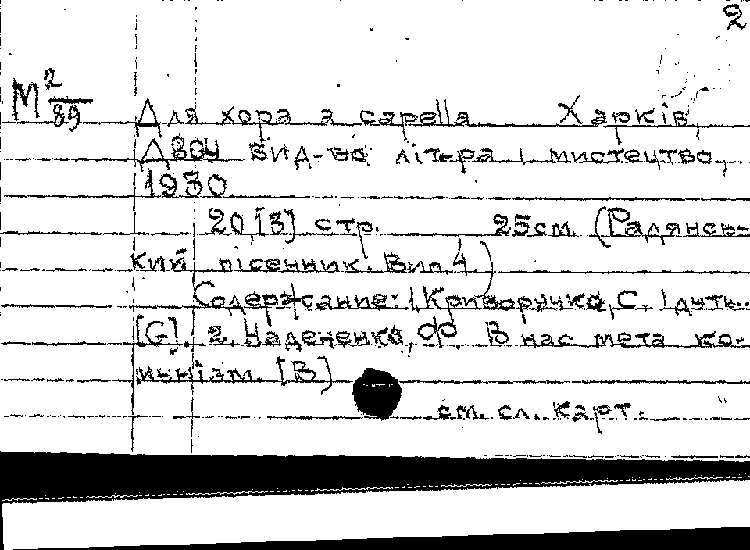 2
М 2/89
Для хора а capella Харків,
ДВОУ вид-во літ-ра і мистецтво,
1930
20,[3] стр. 25см. (Радянсь-
кий пісенник. Вип. 4.)
Содержание: 1. Криворучко, С. Ідуть..
[G]. 2. Надененко, Ф. В нас мета ко-
мунізм. [B]
см. сл. карт.